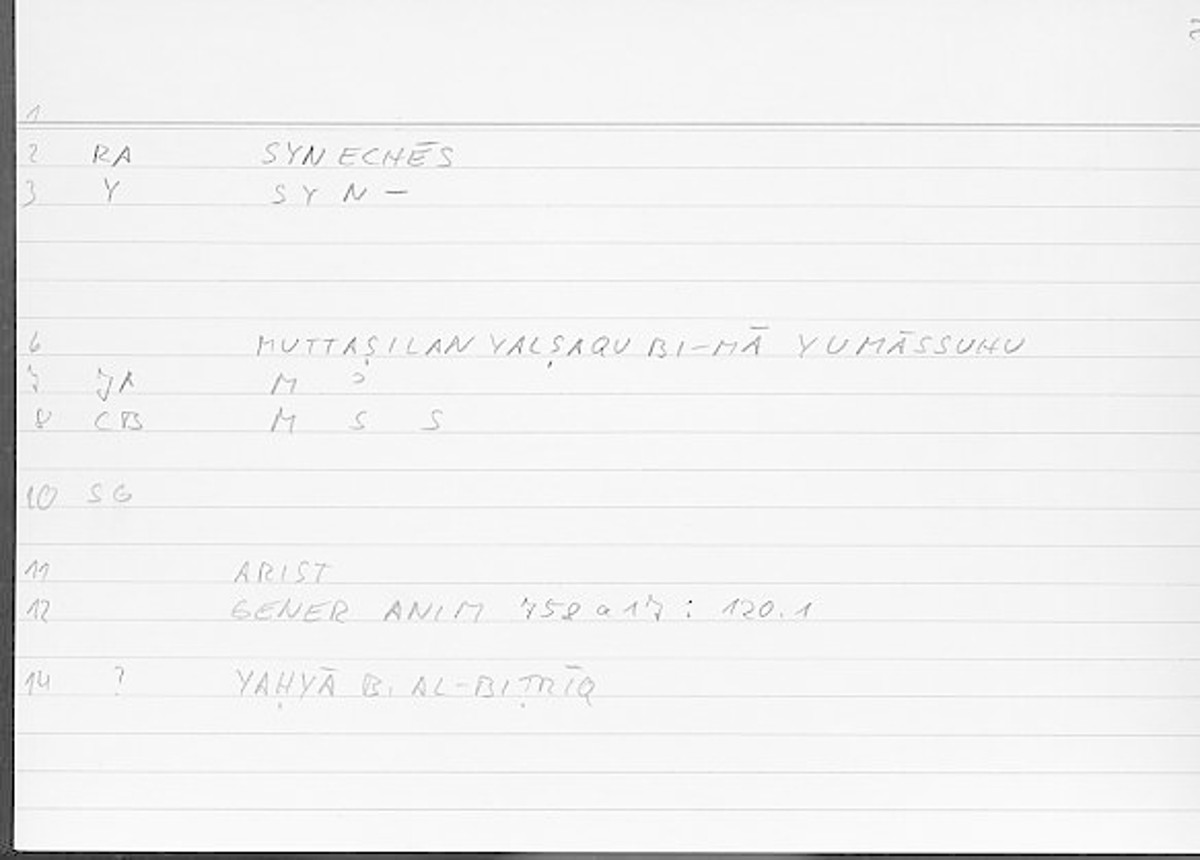 1
2 RA SYNECHĒS
3 Y SYN-
6 MUTTAṢILAN YALṢAQU BI-MĀ YUMĀSSUHU
7 JA M ɔ
8 CB M S S
10 SG
11 ARIST
12 GENER ANIM 758a17 : 120.1
14 ? YAḤYĀ B. AL-BIṬRĪQ